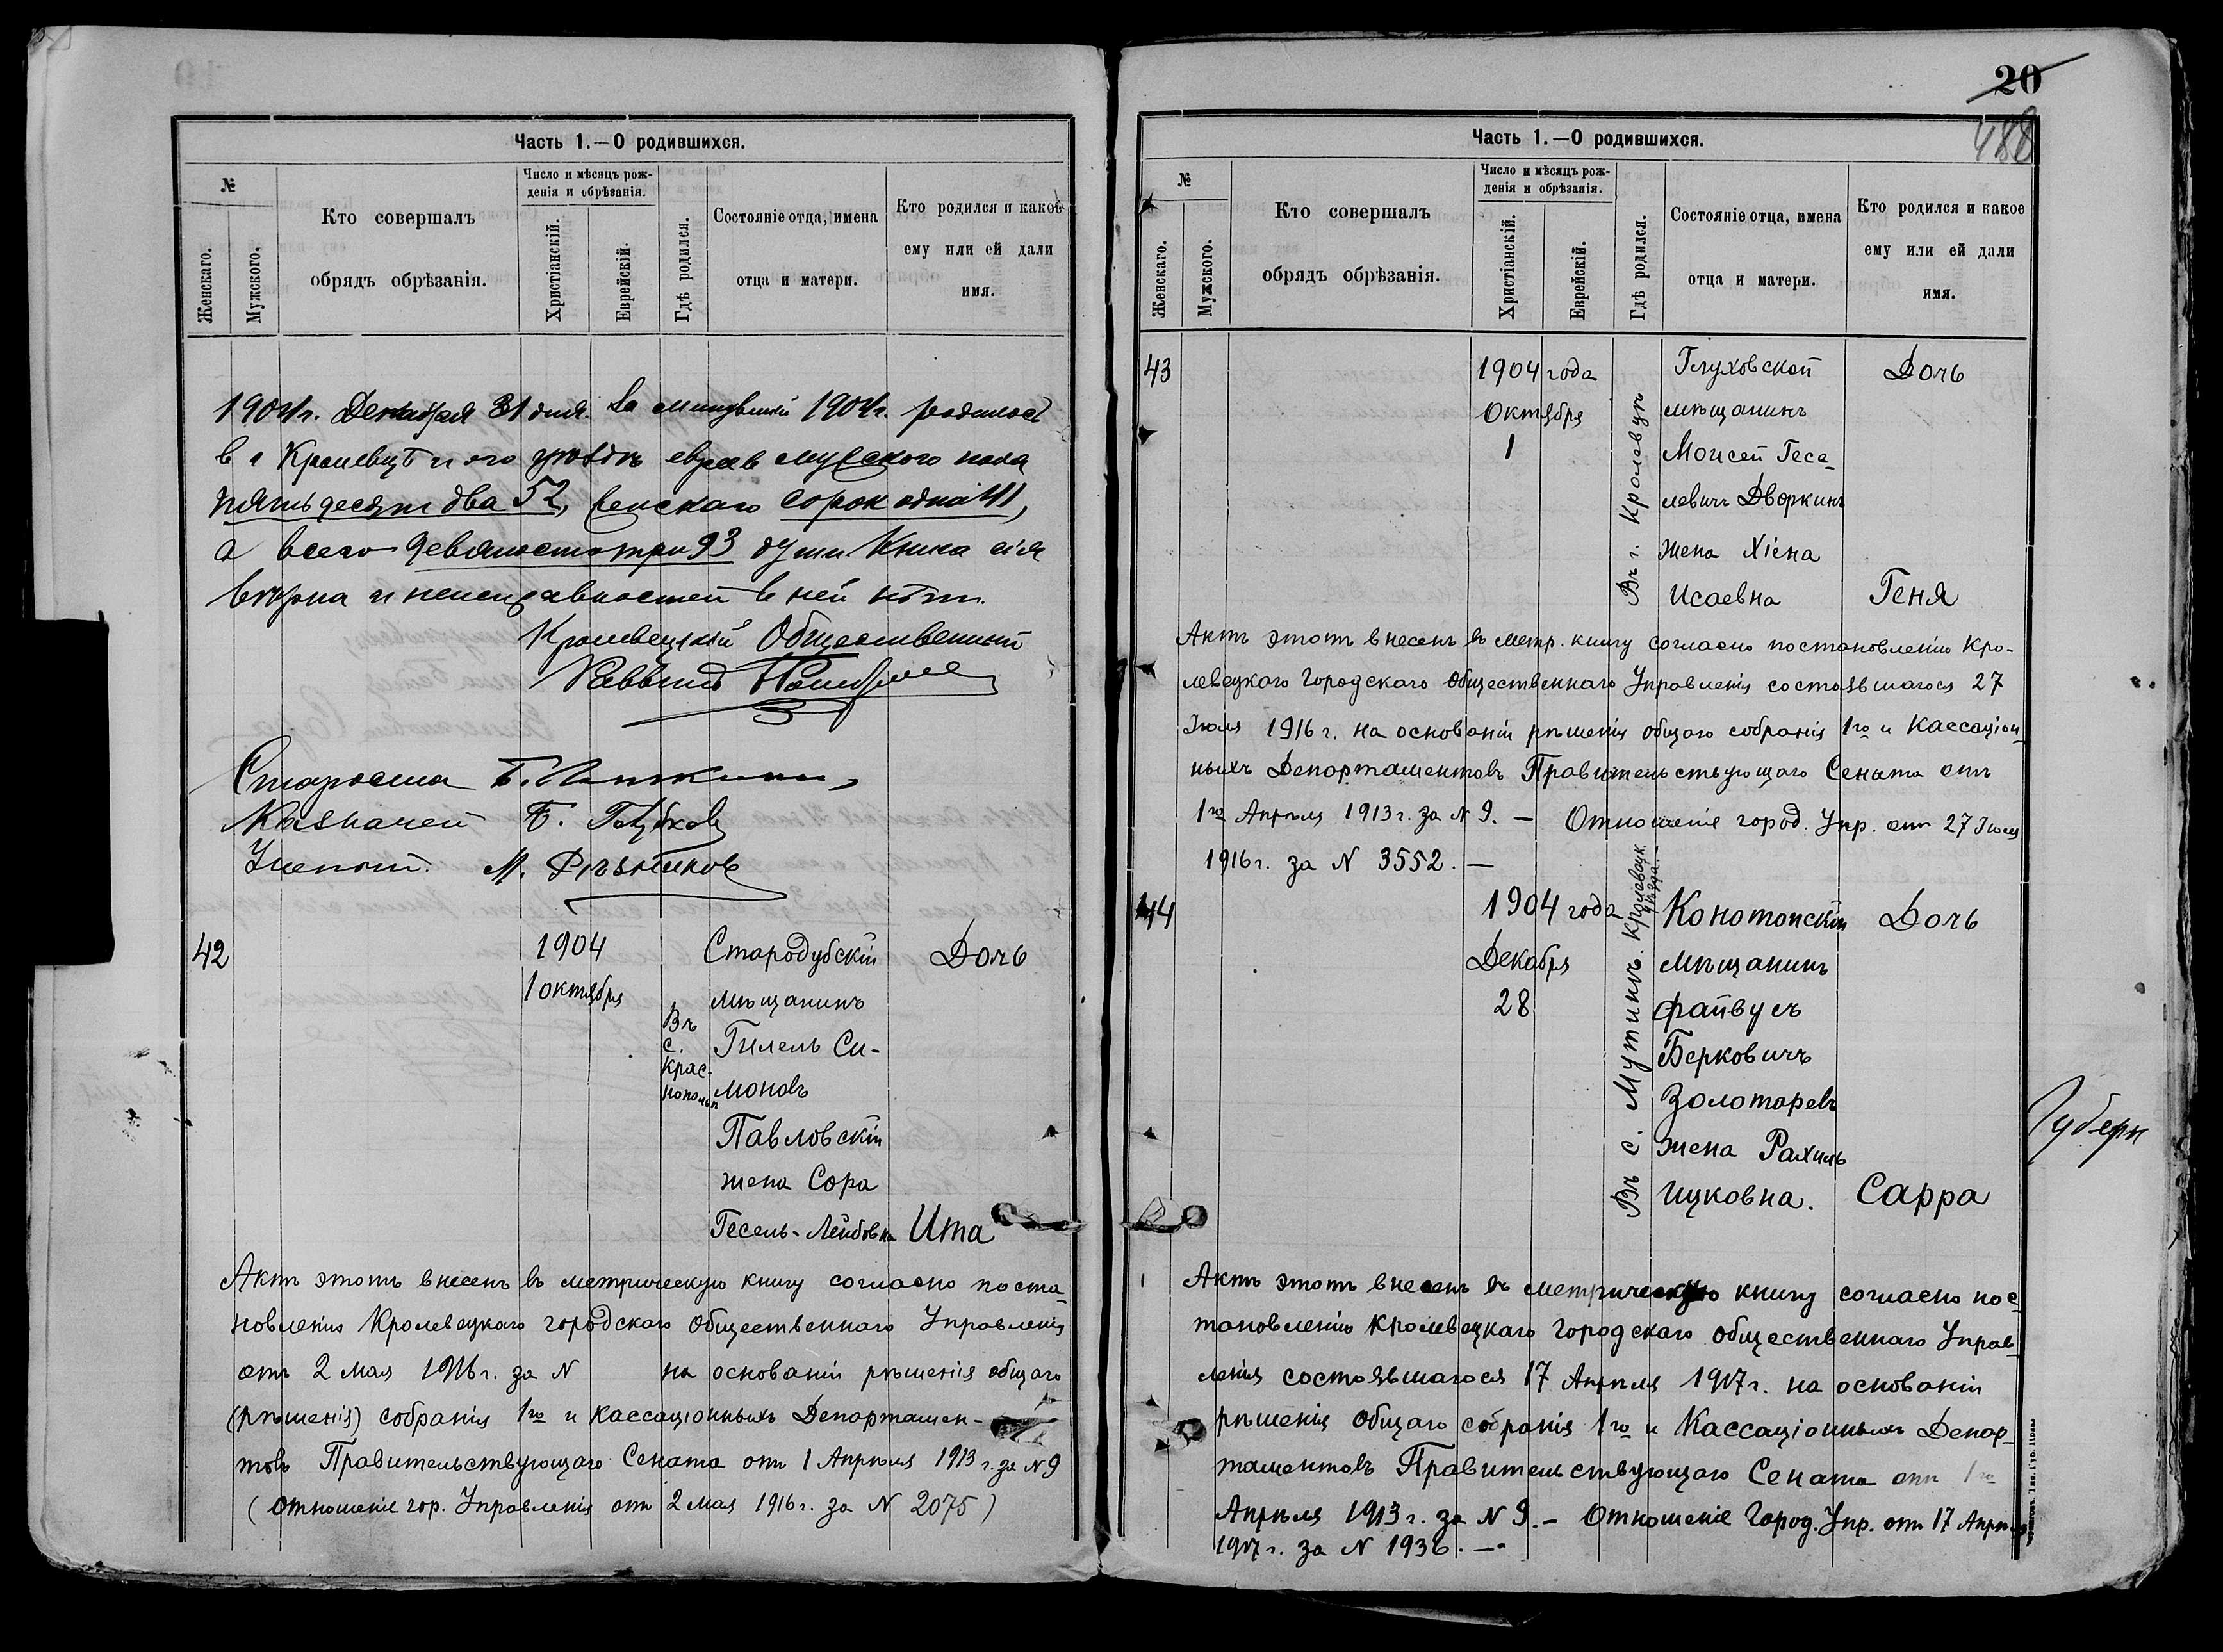 Часть 1.—О родившихся.
№
Женскаго.
Мужского.
Кто совершалъ
обрядъ обрѣзанія.
Число и мѣсяцъ рож-
денія и обрѣзанія.
Христіанскій.
Еврейскій.
Гдѣ родился.
Состояніе отца, имена
отца и матери.
Кто родился и какое
ему или ей дали
имя.
1904 г. Декабря 31 дня. За минувший 1904 г. родилось
в г Кролевцѣ и его уѣздѣ евреев мужского пола
пятьдесят два 52, женскаго сорок одна 41,
а всего девяносто три 93 души Книга сія
вѣрна и неисправностей в ней нѣт.
Кролевецкій Общественный
Раввинъ
Староста Б.
Казначей Б.
Ученый. М.
42
1904
1 октября
Въ
с.
Крас-
нополье
Стародубскій
мѣщанинъ
Гилель Си-
моновъ
Павловскій
жена Сора
Гесель-Лейбовна
Дочь
Ита
Актъ этотъ внесенъ въ метрическую книгу согласно поста-
новленію Кролевецкаго городскаго Общественнаго Управленія
отъ 2 мая 1916 г. за N на основаніи рѣшенія общаго
(рѣшенія) собранія 1го и кассаціонныхъ Департамен-
товъ Правительствующаго Сената отъ 1 Апрѣля 1913 г. за N 9
(отношеніе гор. Управленія отъ 2 мая 1916 г. за N 2075)
20
488
Часть 1.—О родившихся.
№
Женскаго.
Мужского.
Кто совершалъ
обрядъ обрѣзанія.
Число и мѣсяцъ рож-
денія и обрѣзанія.
Христіанскій.
Еврейскій.
Гдѣ родился.
Состояніе отца, имена
отца и матери.
Кто родился и какое
ему или ей дали
имя.
43
1904 года
Октября
1
Въ г. Кролевцѣ
Глуховской
мѣщанинъ
Моисей Геса-
левичъ Дворкинъ
жена Хіена
Исаевна
Дочь
Геня
Актъ этотъ внесенъ въ метр. книгу согласно постановленію Кро-
левецкаго Городскаго Общественнаго Управленія состоявшагося 27
Іюля 1916 г. на основаніи рѣшенія общаго собранія 1го и Кассаціон-
ныхъ Департаментовъ Правительствующаго Сената отъ
1го Апрѣля 1913 г. за N 9. — Отношеніе город. Упр. отъ 27 Іюля
1916 г. за N 3552. —
44
1904 года
Декабря
28
Въ с. Мутинъ. Кролевецк. уѣзда.
Конотопскій
мѣщанинъ
Файвусъ
Берковичъ
Золотаревъ
жена Рахиль
Ицковна.
Дочь
Сарра
Губерн
Актъ этотъ внесенъ въ метрическую книгу согласно пос-
тановленію Кролевецкаго Городскаго общественнаго Управ-
ленія состоявшагося 17 Апрѣля 1917 г. на основаніи
рѣшенія общаго собранія 1го и Кассаціонныхъ Депар-
таментовъ Правительствующаго Сената отъ 1го
Апрѣля 1913 г. за N 9. — Отношеніе Город. Упр. отъ 17 Апрѣля
1917 г. за N 1936. —